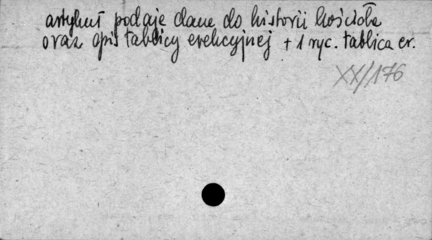 artykuł podaje dane do historii kościoła
oraz opis tablicy erekcyjnej + 1 ryc. tablica er.
XX/176